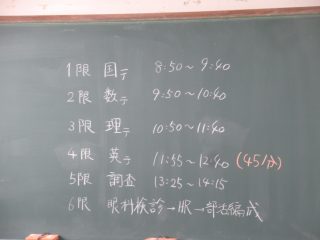 1限 国テ 8:50～9:40
2限 数テ 9:50～10:40
3限 理テ 10:50～11:40
4限 英テ 11:55～12:40 (45分)
5限 調査 13:25～14:15
6限 眼科検診→HR→部活編成